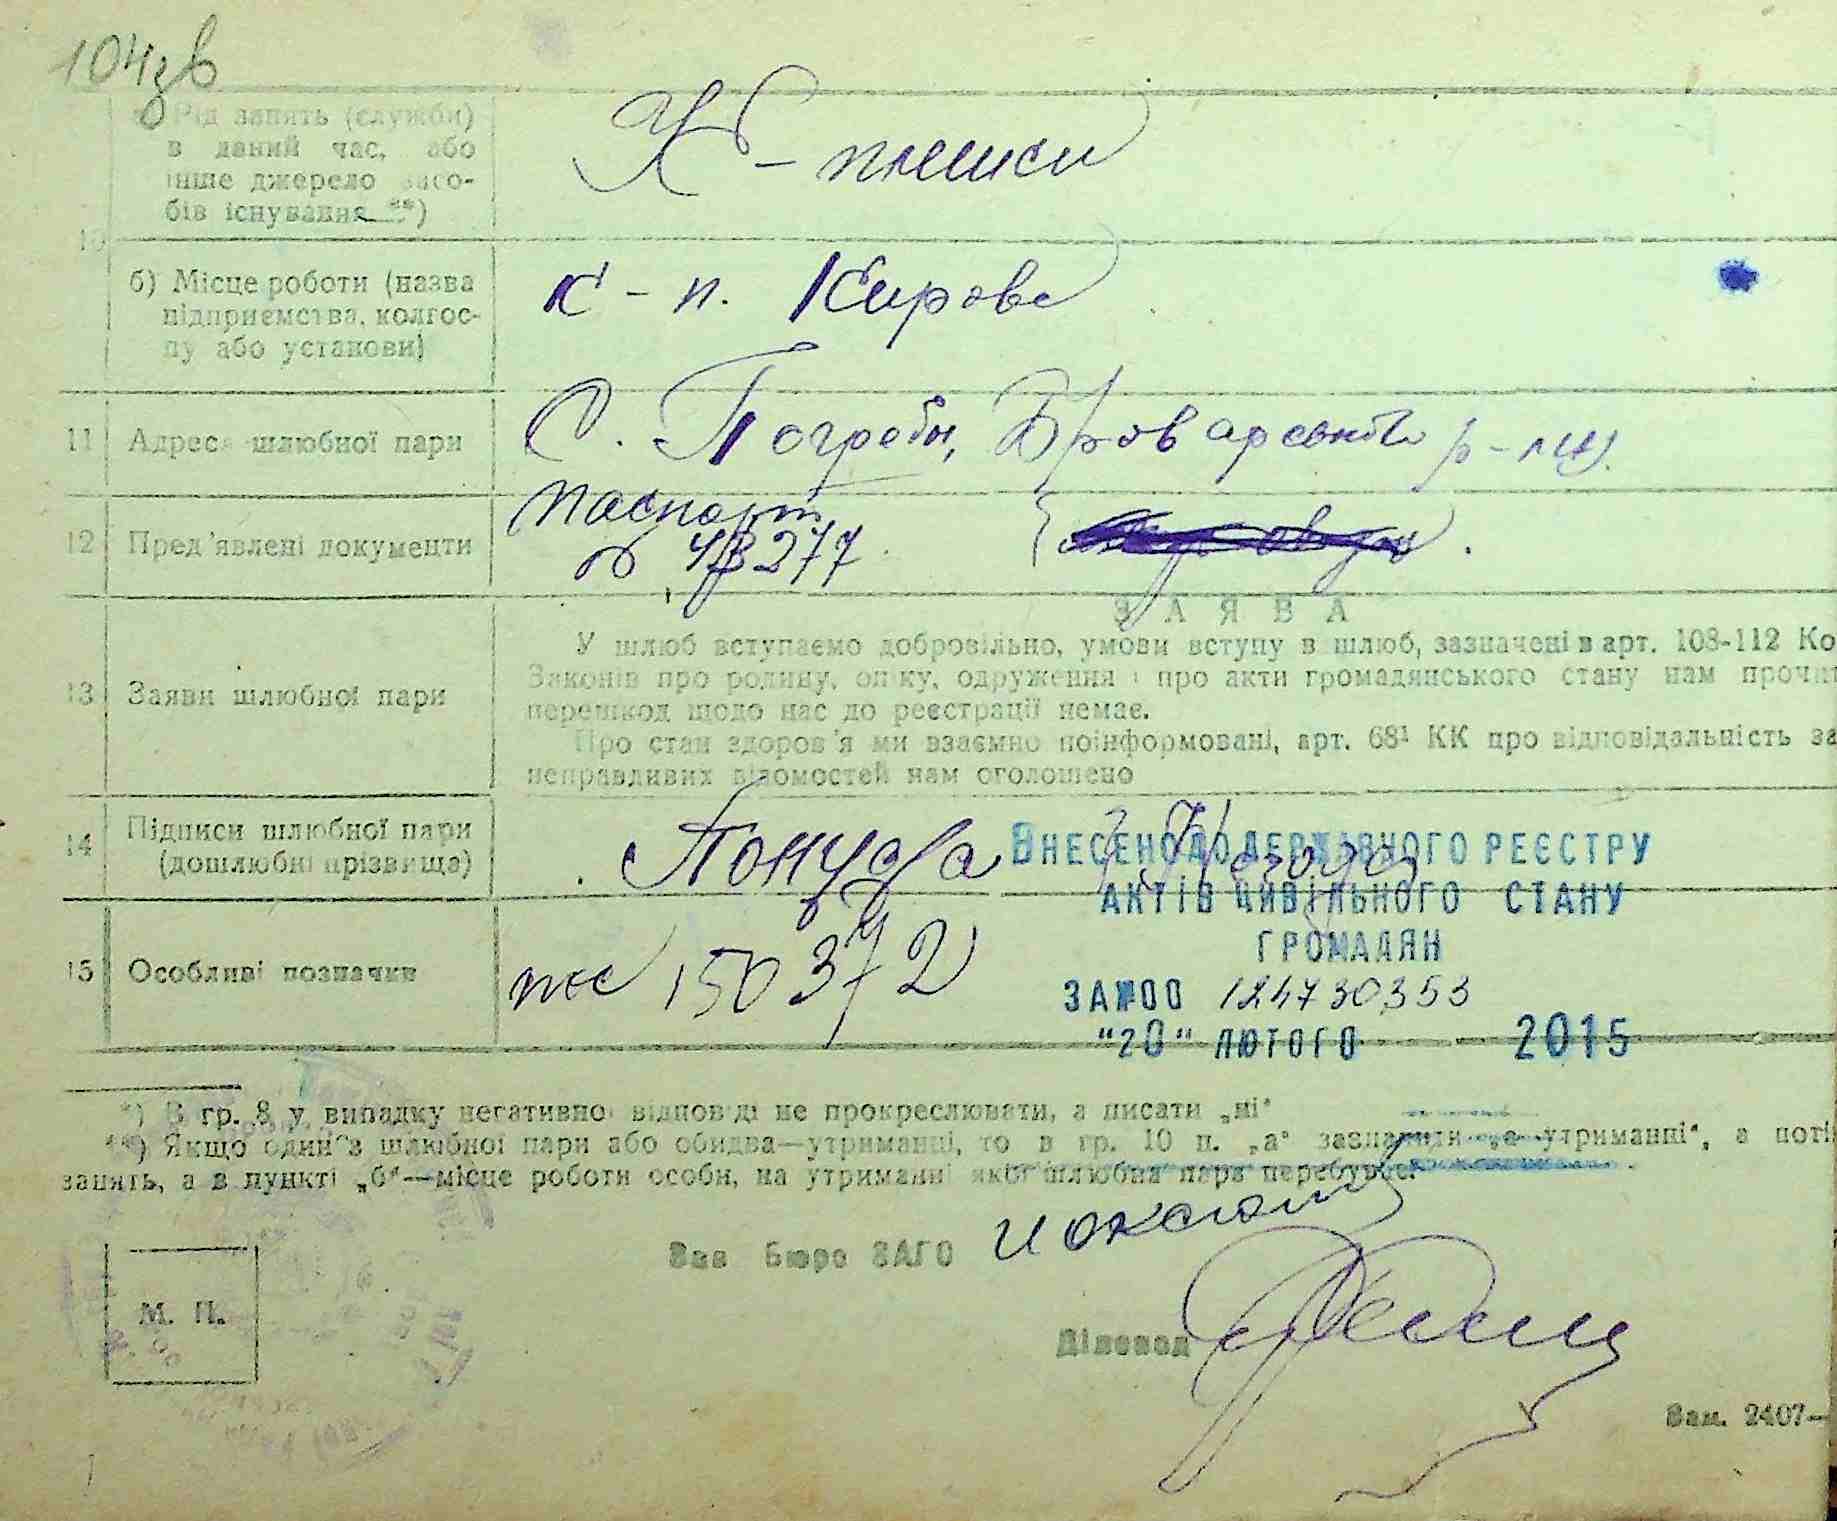 104зв
а) Рід занять (служби)
в даний час, або
інше джерело засо-
бів існування **)
К-
10
б) Місце роботи (назва
підприємства, колгос-
пу або установи)
к-п. Кирова
11 Адреса шлюбної пари
С. Погреби, Броварського р-ну.
12 Пред'явлені документи
паспорт
277
ЗАЯВА
13 Заяви шлюбної пари
У шлюб вступаємо добровільно, умови вступу в шлюб, зазначені в арт. 108-112 Ко
Законів про родину, опіку, одруження і про акти громадянського стану нам прочит
перешкод щодо нас до реєстрації немає.
Про стан здоров'я ми взаємно поінформовані, арт. 68¹ КК про відповідальність за
неправдивих відомостей нам оголошено
14 Підписи шлюбної пари
(дошлюбні прізвища)
ВНЕСЕНО ДО ДЕРЖАВНОГО РЕЄСТРУ
АКТІВ ЦИВІЛЬНОГО СТАНУ
ГРОМАДЯН
ЗА №00 124730353
"20" ЛЮТОГО 2015
15 Особливі позначки
150372
*) В гр. 8 у випадку негативної відповіді не прокреслювати, а писати „ні"
**) Якщо один з шлюбної пари або обидва—утриманці, то в гр. 10 п. „а" зазначити „а утриманці", а поті
занять, а в пункті „б"—місце роботи особи, на утриманні якої шлюбна пара перебуває.
Зав Бюро ЗАГС
М. П.
Діловод
Зам. 2407—